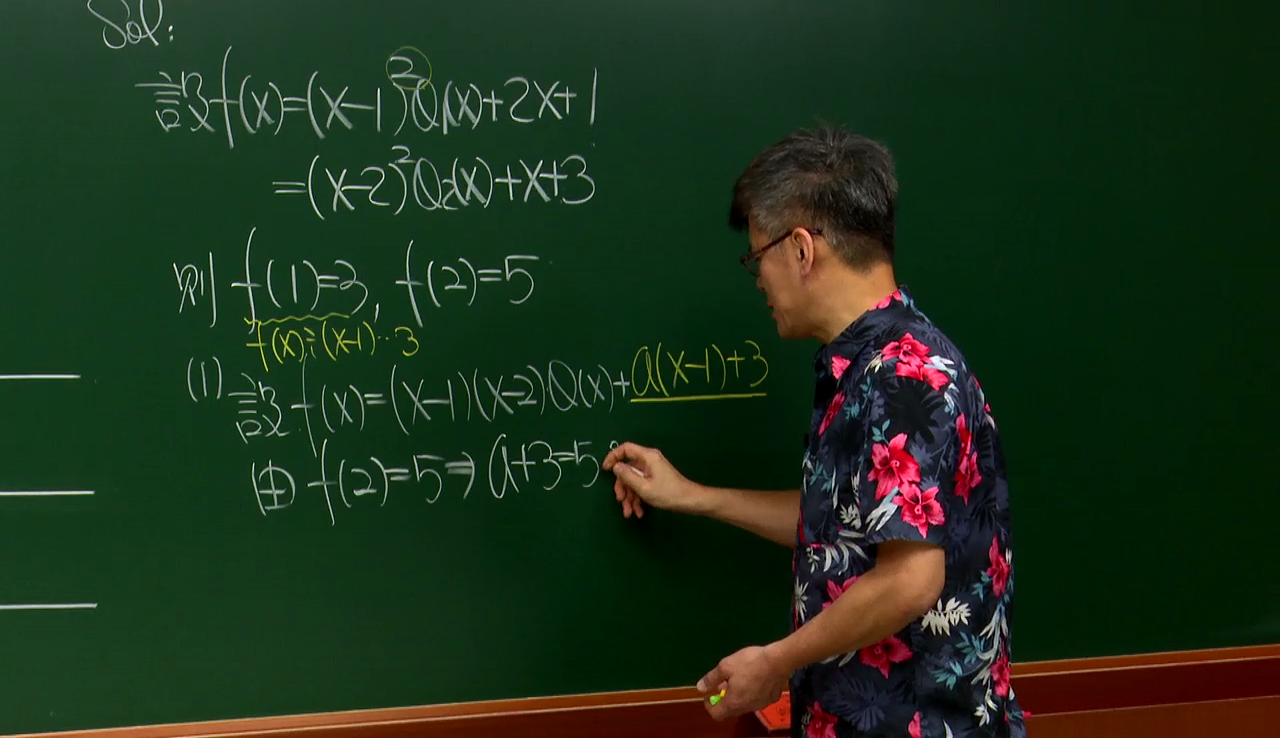 Sol:
設f(x)=(x-1)²Q₁(x)+2x+1
=(x-2)²Q₂(x)+x+3
則 f(1)=3, f(2)=5
f(x)÷(x-1)…3
(1) 設 f(x)=(x-1)(x-2)Q(x)+a(x-1)+3
由 f(2)=5⇒a+3=5